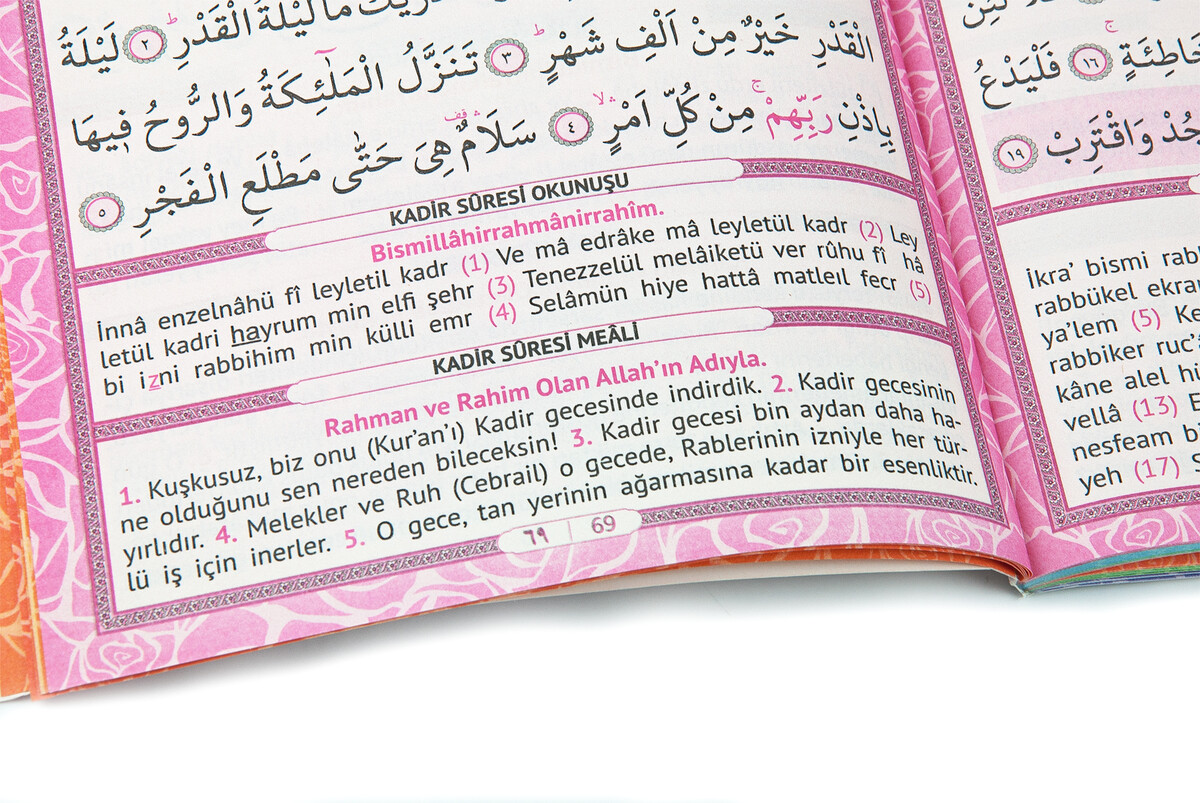 الْقَدْرِ ﴿٢﴾ لَيْلَةُ
الْقَدْرِ خَيْرٌ مِنْ اَلْفِ شَهْرٍ ﴿٣﴾ تَنَزَّلُ الْمَلٰٓئِكَةُ وَالرُّوحُ فٖيهَا
بِاِذْنِ رَبِّهِمْ مِنْ كُلِّ اَمْرٍ ﴿٤﴾ سَلَامٌ هِىَ حَتّٰى مَطْلَعِ الْفَجْرِ ﴿٥﴾
KADİR SÛRESİ OKUNUŞU
Bismillâhirrahmânirrahîm.
İnnâ enzelnâhü fî leyletil kadr (1) Ve mâ edrâke mâ leyletül kadr (2) Ley
letül kadri hayrum min elfi şehr (3) Tenezzelül melâiketü ver rûhu fî hâ
bi izni rabbihim min külli emr (4) Selâmün hiye hattâ matleıl fecr (5)
KADİR SÛRESİ MEÂLİ
Rahman ve Rahim Olan Allah’ın Adıyla.
1. Kuşkusuz, biz onu (Kur’an’ı) Kadir gecesinde indirdik. 2. Kadir gecesinin
ne olduğunu sen nereden bileceksin! 3. Kadir gecesi bin aydan daha ha-
yırlıdır. 4. Melekler ve Ruh (Cebrail) o gecede, Rablerinin izniyle her tür-
lü iş için inerler. 5. O gece, tan yerinin ağarmasına kadar bir esenliktir.
٦٩ | 69
خَاطِئَةٍ ﴿١٦﴾ فَلْيَدْعُ
وَاقْتَرِبْ ﴿١٩﴾
İkra’ bismi rab
rabbükel ekra
ya’lem (5) Ke
rabbiker ruc’
kâne alel hü
vellâ (13) E
nesfeam bi
yeh (17) S